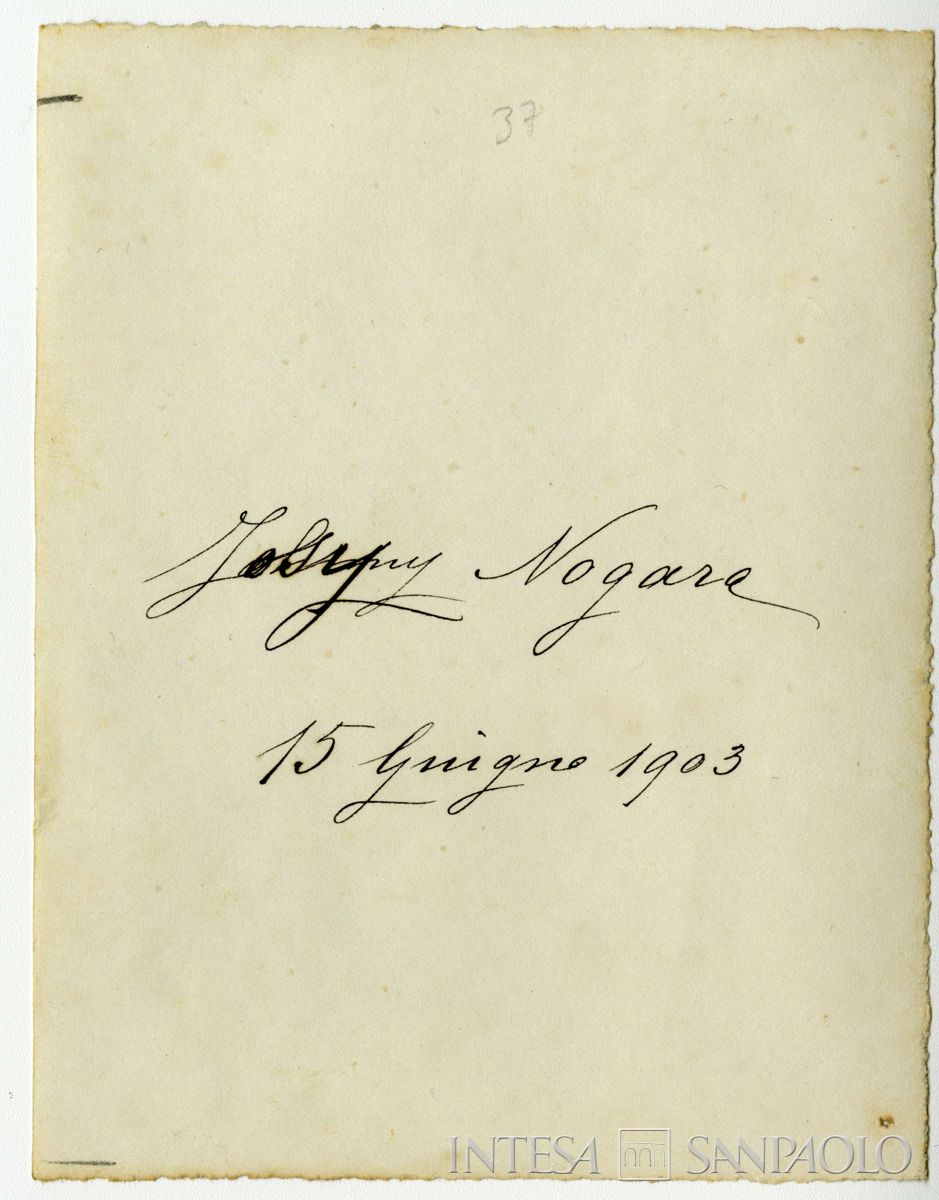 37
Nogara
15 Giugno 1903
INTESA SANPAOLO